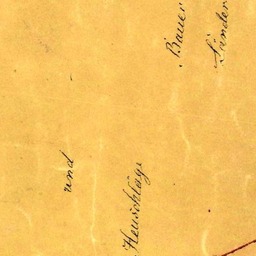 und
Heuschläge
Bauer
Länder